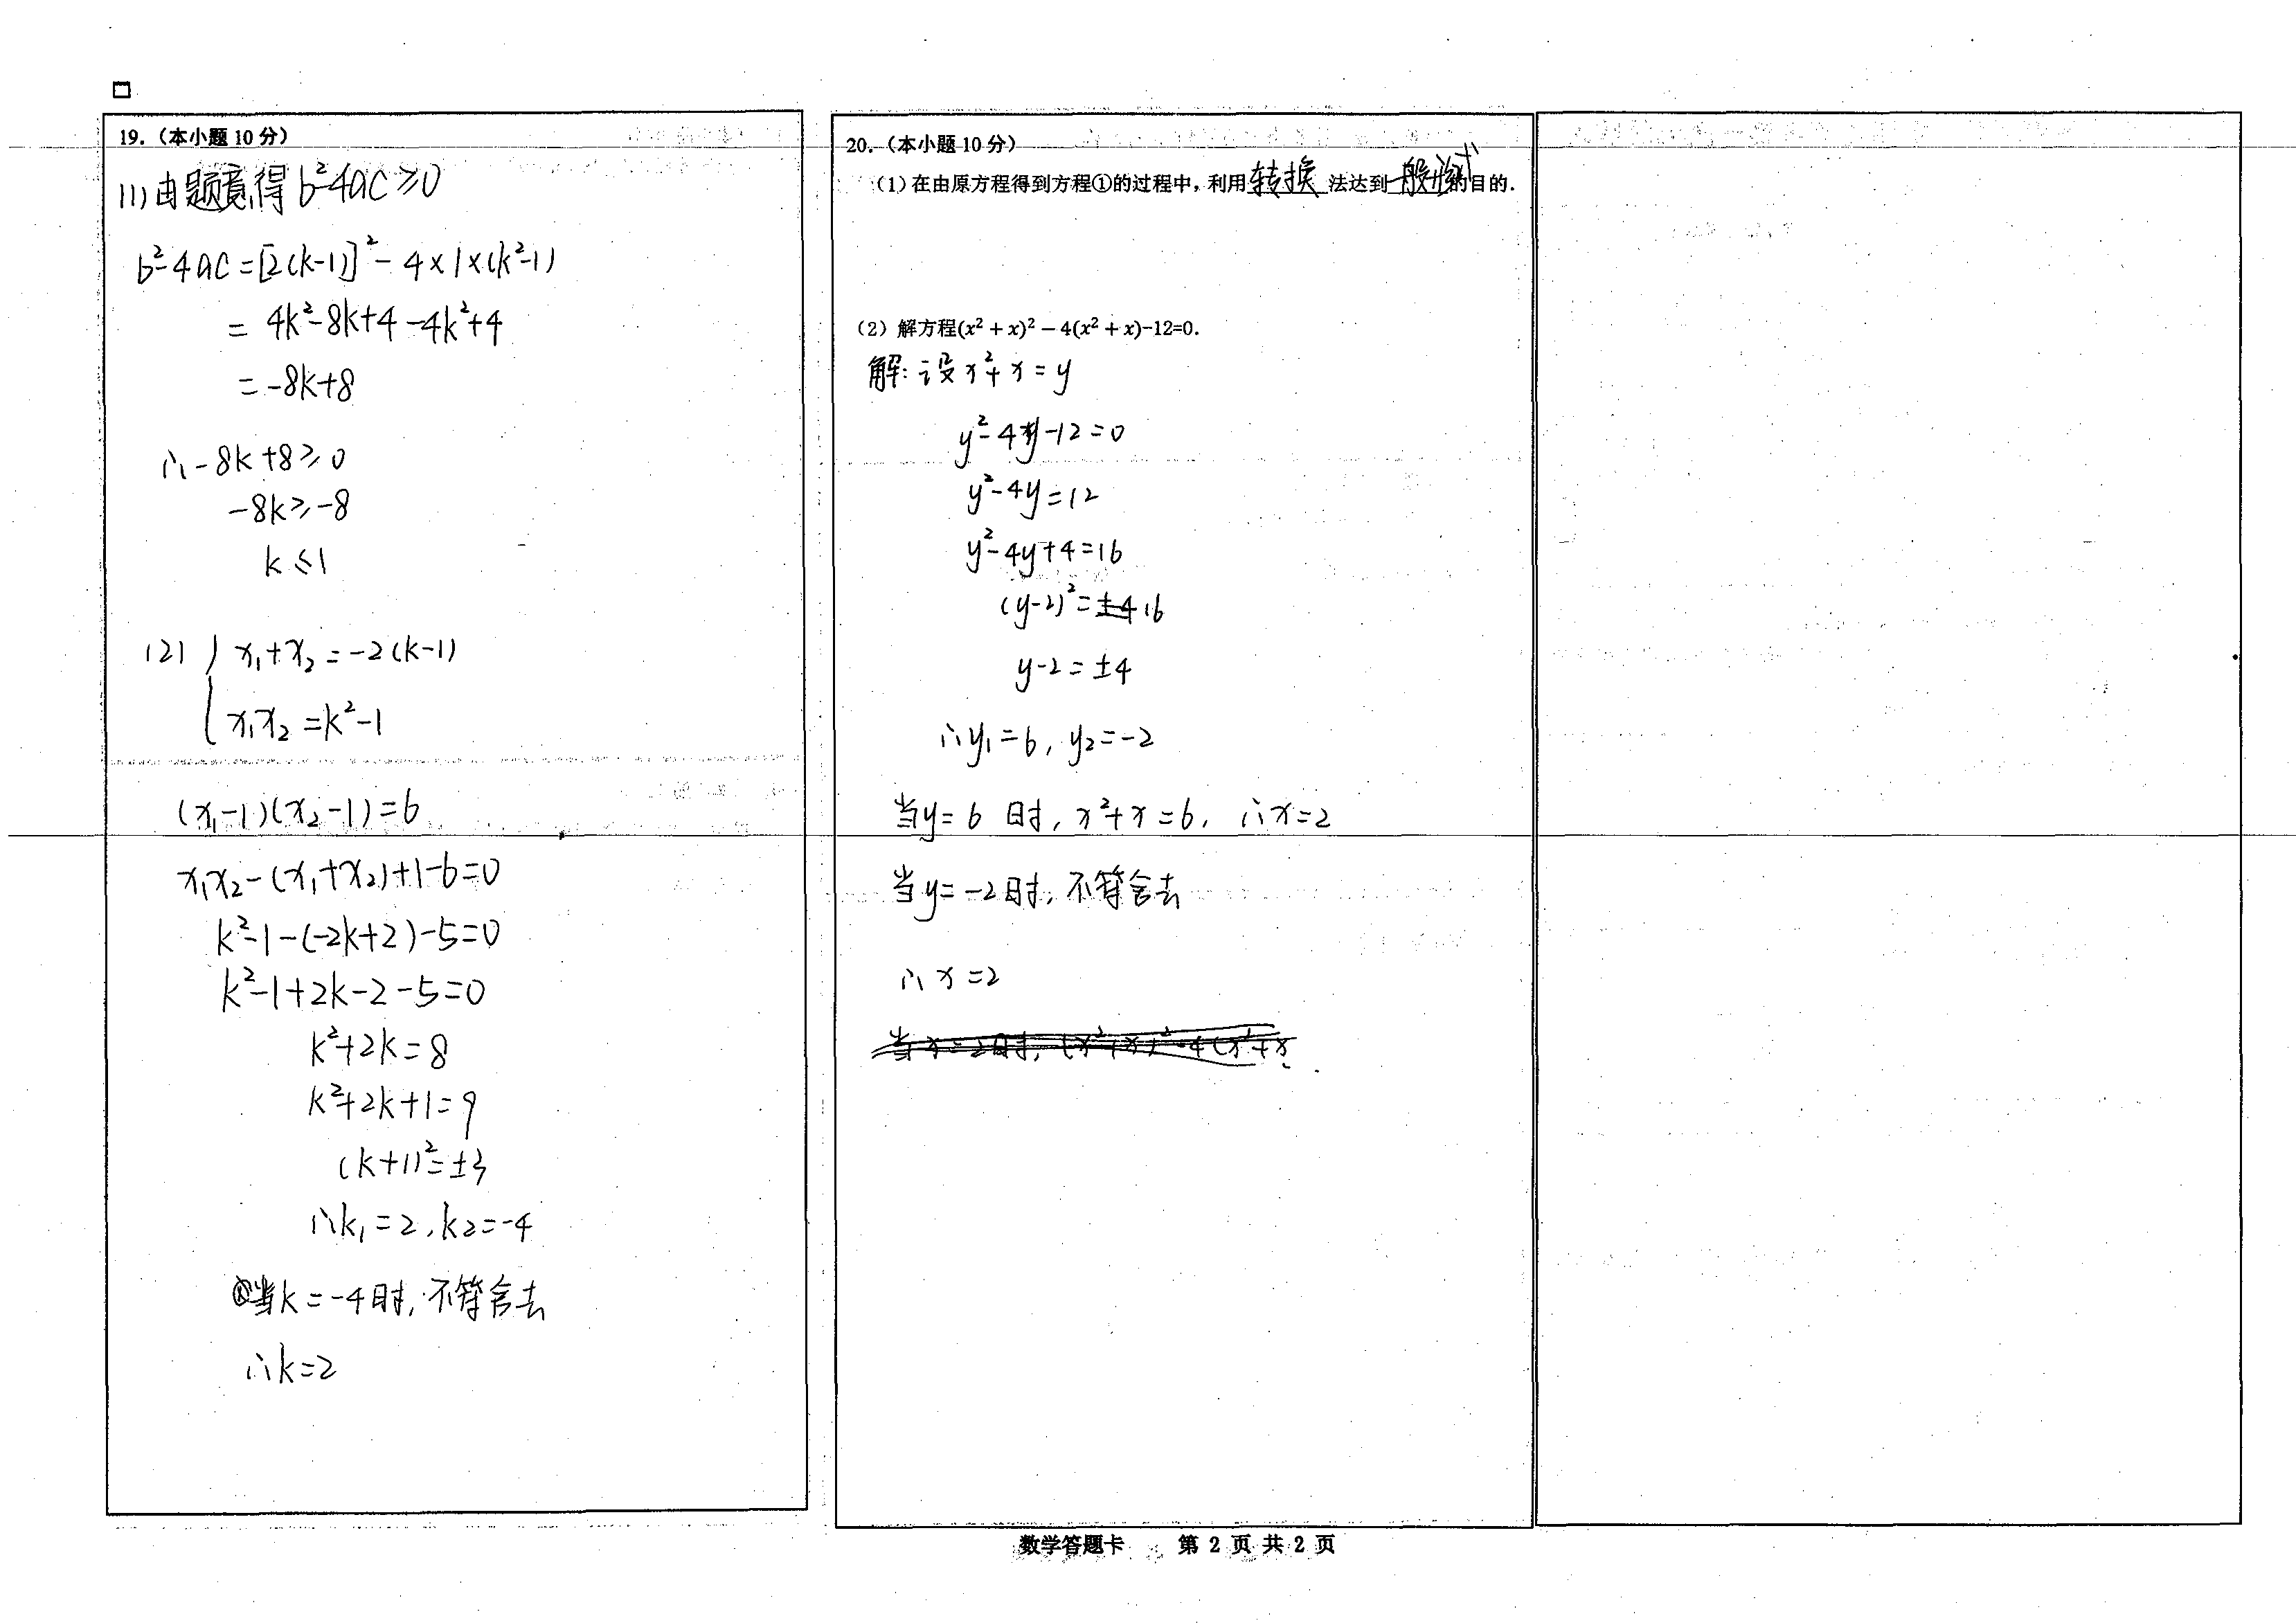 19.（本小题 10 分）
(1)由题意,得 b²-4ac≥0
b²-4ac=[2(k-1)]²-4×1×(k²-1)
= 4k²-8k+4-4k²+4
=-8k+8
∴-8k+8≥0
-8k≥-8
k≤1
(2) { x₁+x₂=-2(k-1)
x₁x₂=k²-1
(x₁-1)(x₂-1)=6
x₁x₂-(x₁+x₂)+1-6=0
k²-1-(-2k+2)-5=0
k²-1+2k-2-5=0
k²+2k=8
k²+2k+1=9
(k+1)²=±3
∴k₁=2,k₂=-4
当k=-4时,不符舍去
∴k=2
20.（本小题 10 分）
（1）在由原方程得到方程①的过程中，利用 转换 法达到 一般形式 的目的.
（2）解方程(x² + x)² − 4(x² + x)-12=0.
解:设x²+x=y
y²-4y-12=0
y²-4y=12
y²-4y+4=16
(y-2)²=±4 16
y-2=±4
∴y₁=6, y₂=-2
当y=6 时, x²+x=6, ∴x=2
当y=-2时,不符舍去
∴x=2
当x=2时, (x²+x)²-4(x²+x
数学答题卡 第 2 页 共 2 页